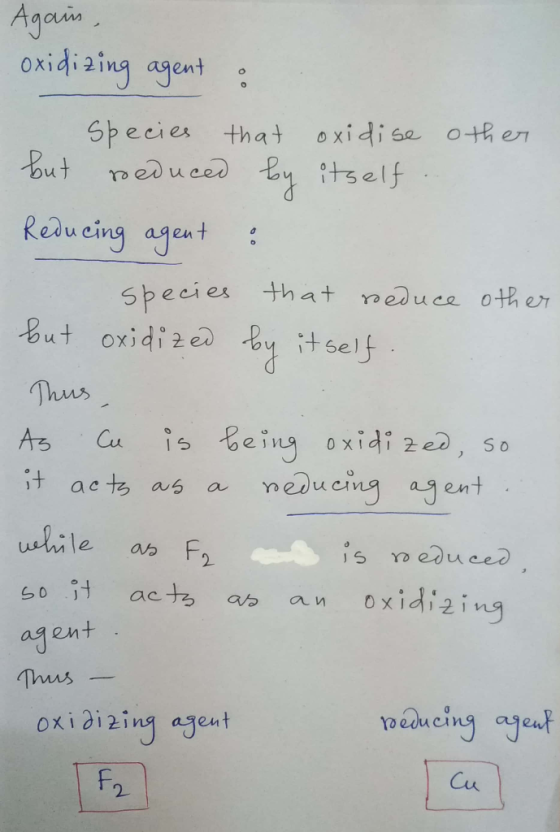 Again,
Oxidizing agent :
Species that oxidise other
but reduced by itself.
Reducing agent :
Species that reduce other
but oxidized by itself.
Thus,
As Cu is being oxidized, so
it acts as a reducing agent.
while as F2 is reduced,
so it acts as an oxidizing
agent.
Thus —
oxidizing agent reducing agent
F2 Cu